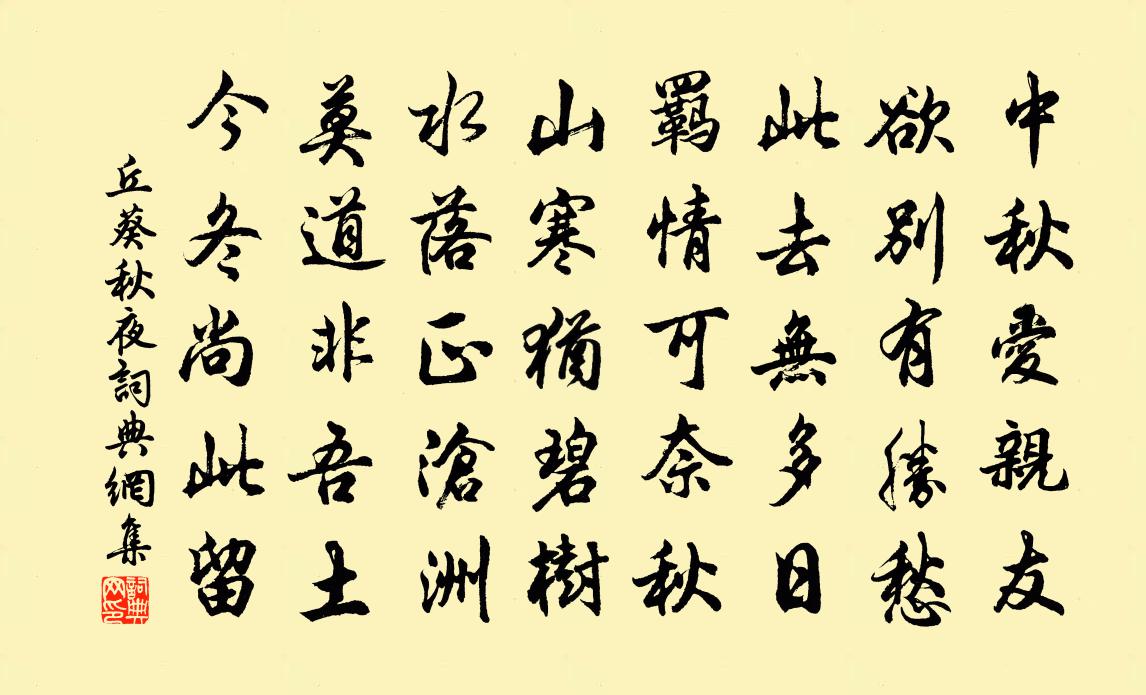 中秋愛親友
欲別有勝愁
此去無多日
羈情可奈秋
山寒猶碧樹
水落正滄洲
莫道非吾土
今冬尚此留
丘葵秋夜詞典網集
詞典網印